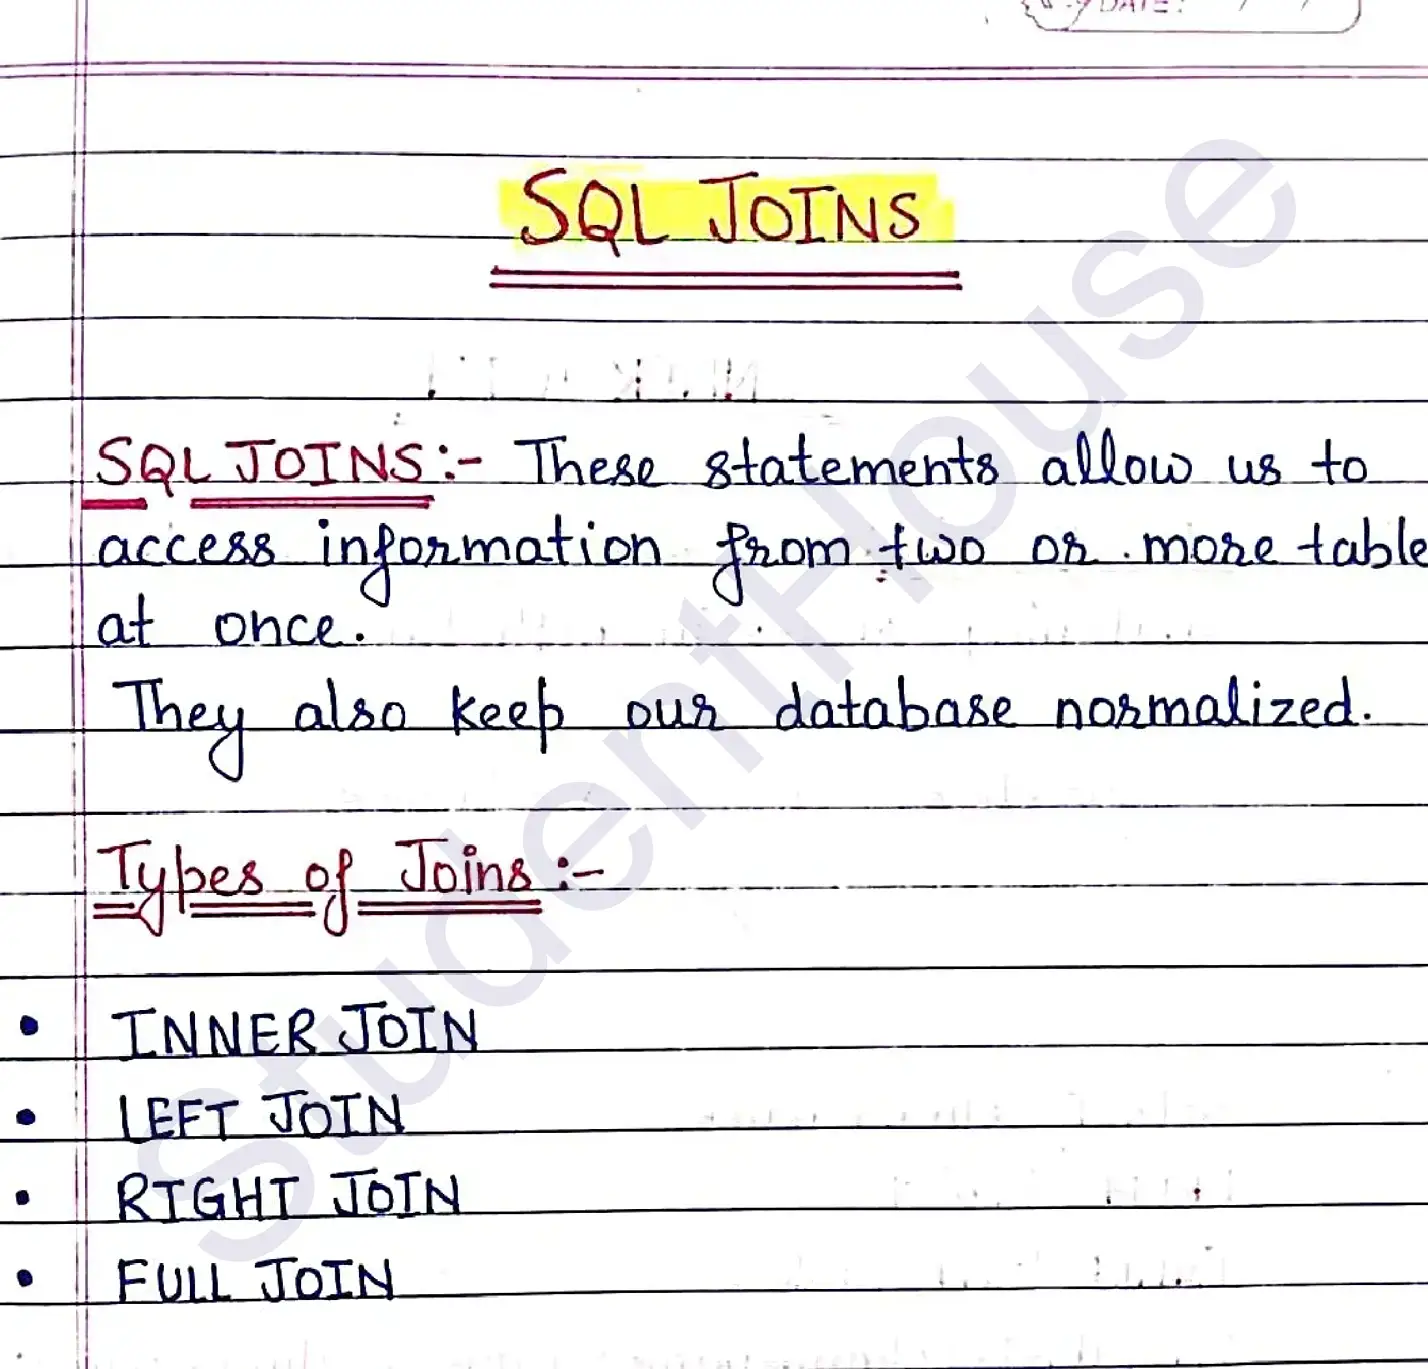 DATE: / /
SQL JOINS
SQL JOINS:- These statements allow us to
access information from two or more table
at once.
They also keep our database normalized.
Types of Joins :-
• INNER JOIN
• LEFT JOIN
• RIGHT JOIN
• FULL JOIN
StudentHouse